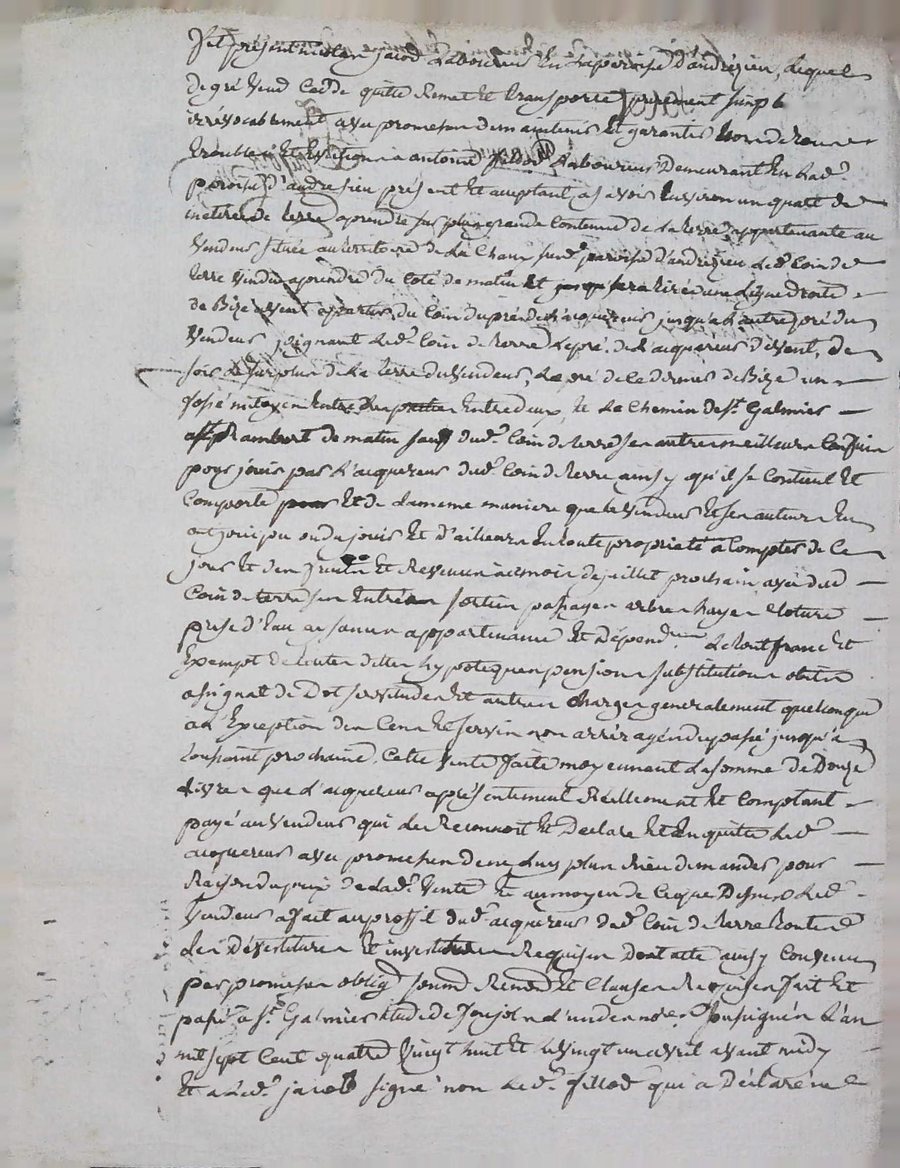 fut présent nicolas jacod Laboureur En la paroisse D'andrézieu, Lequel
de gré vend Cedde quitte Remet Et transporte purement simple
irrévocablement avec promesse de maintenir Et garantir
trouble Et Eviction a antoine fillod Laboureur Demeurant En Lad.e
paroisse D'andresieu présent Et acceptant, asavoir Environ un quart de
meterée de terre aprendre sur plus grande Contenue de La terre appartenante au
Vendeur située au territoire de La Chaux sus.e paroisse d'andrézieu Led. Coin de
terre vendu aprendre du Coté de matin Et sera tiré une Ligne Droite
de Bize a vent a partir du Coin du pré de L'acquereur jusqu'a L'autre pré du
Vendeur joignant Led. Coin de terre Le pré de L'acquereur de vent, de
soir Le surplus de La terre du Vendeur, Le pré de Ce dernier de Bize un
fossé mitoyen Entre deux, Et Le Chemin de St. Galmier
a St Rambert de matin sauf dud. Coin de terre ses autres meilleurs Confins
pour jouir par L'acquereur dud. Coin de terre ainsy qu'il se Contient Et
Comporte Et de La meme maniere que Le Vendeur Et ses auteurs En
ont joui pu ou du jouir Et d'ailleurs En toute propriété a Compter de Ce
jour Et des fruits Et Revenus au mois de juillet prochain avec dud.
Coin de terre ses Entrées sorties passages arbres hayes Cloture
prise d'Eau aisances appartenances Et Dépend.ces Le tout franc Et
Exempt de toutes dettes hypoteques pensions substitutions obits
assignat de Dot servitudes Et autres Charges generalement quelconque
a L'Exception des Cens Et Servis non arréragés du passé jusqu'a
toussaint prochaine. Cette Vente faite moyennant La somme de Douze
Livres que L'acquereur a présentement Réellement Et Comptant
payé au Vendeur qui Le Reconnoit Et Declare Et En quitte Led.
acquereur avec promesse de ne Luy plus Rien demander pour
Raison du prix de Lad. Vente Et au moyen de Ce que Dessus Led.
Vendeur a fait au proffit dud. acquereur dud. Coin de terre toutes
Les Dévestitures Et investitures Requises Dont acte ainsy Convenu
par promesses oblig. soum. Renon. Et Clauses Requises fait Et
passé a St. Galmier Etude de L'un des no.res Soussignés L'an
mil sept Cent quatre Vingt huit Et Le vingt un avril avant midy
Et a Led. jacod signé non Led. fillod qui a Déclaré ne